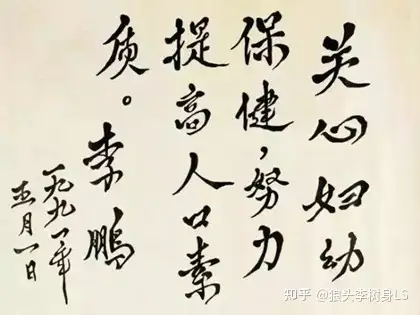 关心妇幼
保健，努力
提高人口素
质。李鹏
一九九一年
五月八日
知乎 @狼头李树身LS